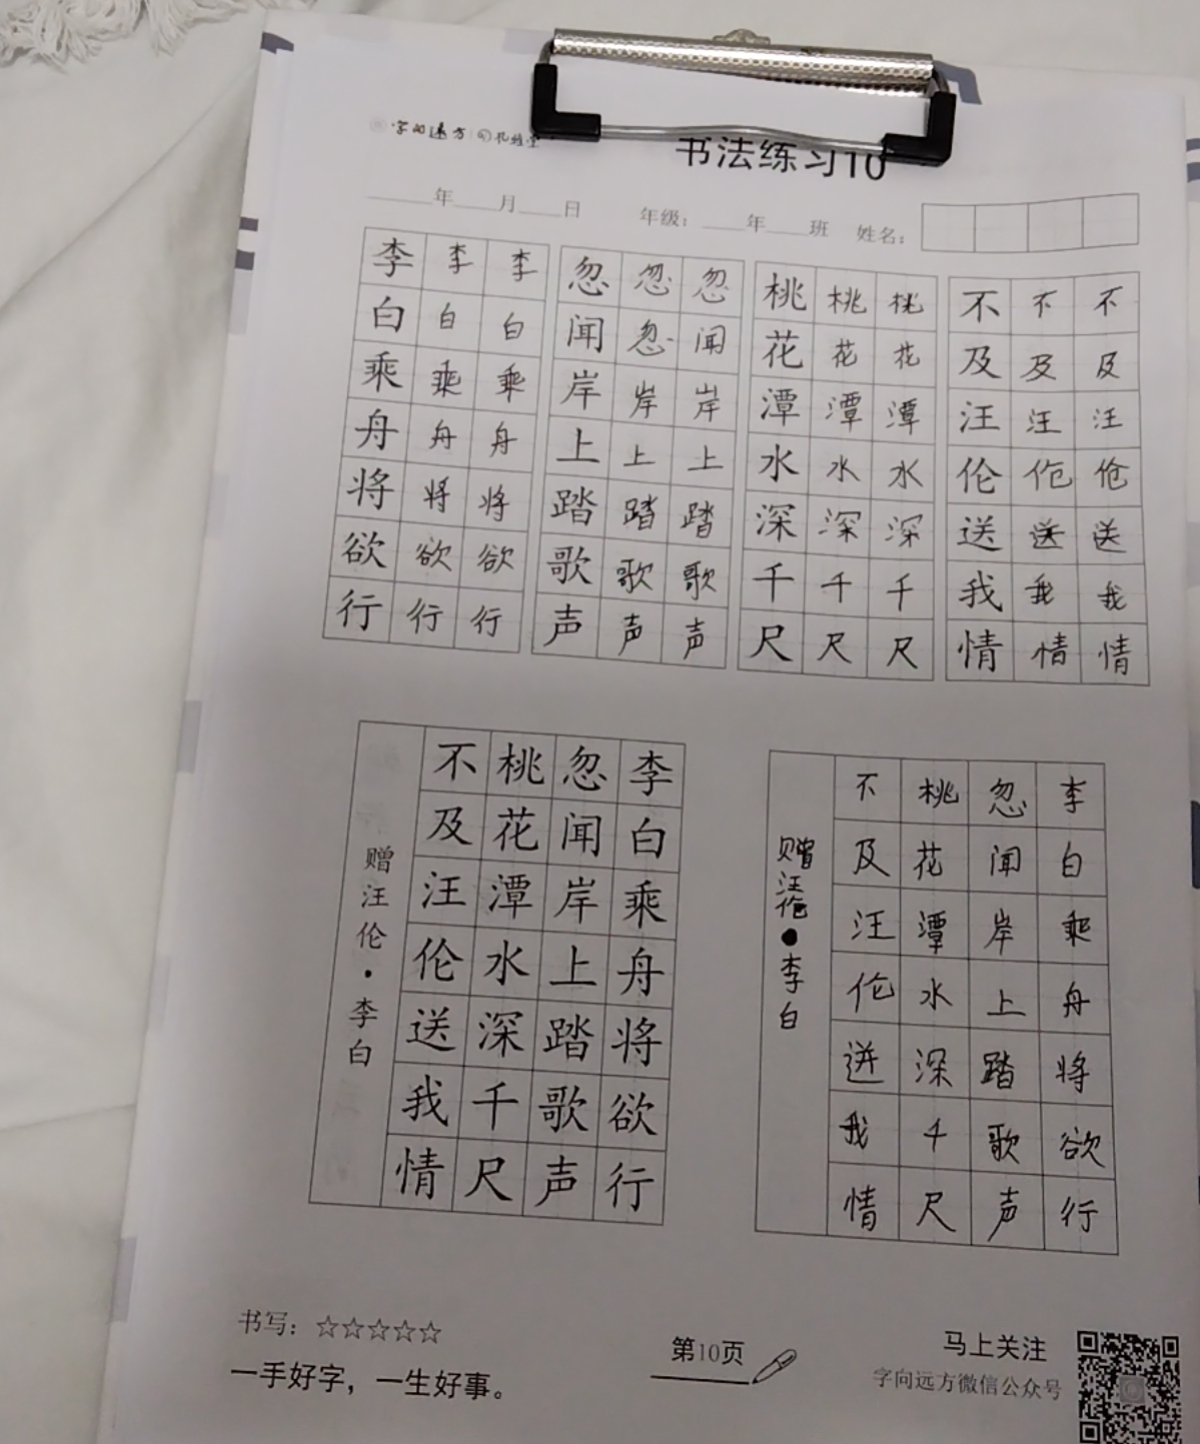 字向远方
书法练习10
年 月 日 年级: 年 班 姓名:
李李李 忽忽忽 桃桃桃 不不不
白白白 闻忽闻 花花花 及及及
乘乘乘 岸岸岸 潭潭潭 汪汪汪
舟舟舟 上上上 水水水 伦伦伦
将将将 踏踏踏 深深深 送送送
欲欲欲 歌歌歌 千千千 我我我
行行行 声声声 尺尺尺 情情情
李白乘舟将欲行
忽闻岸上踏歌声
桃花潭水深千尺
不及汪伦送我情
赠汪伦·李白
李白乘舟将欲行
忽闻岸上踏歌声
桃花潭水深千尺
不及汪伦送我情
赠汪伦●李白
书写: ☆☆☆☆☆
一手好字，一生好事。
第10页
马上关注
字向远方微信公众号